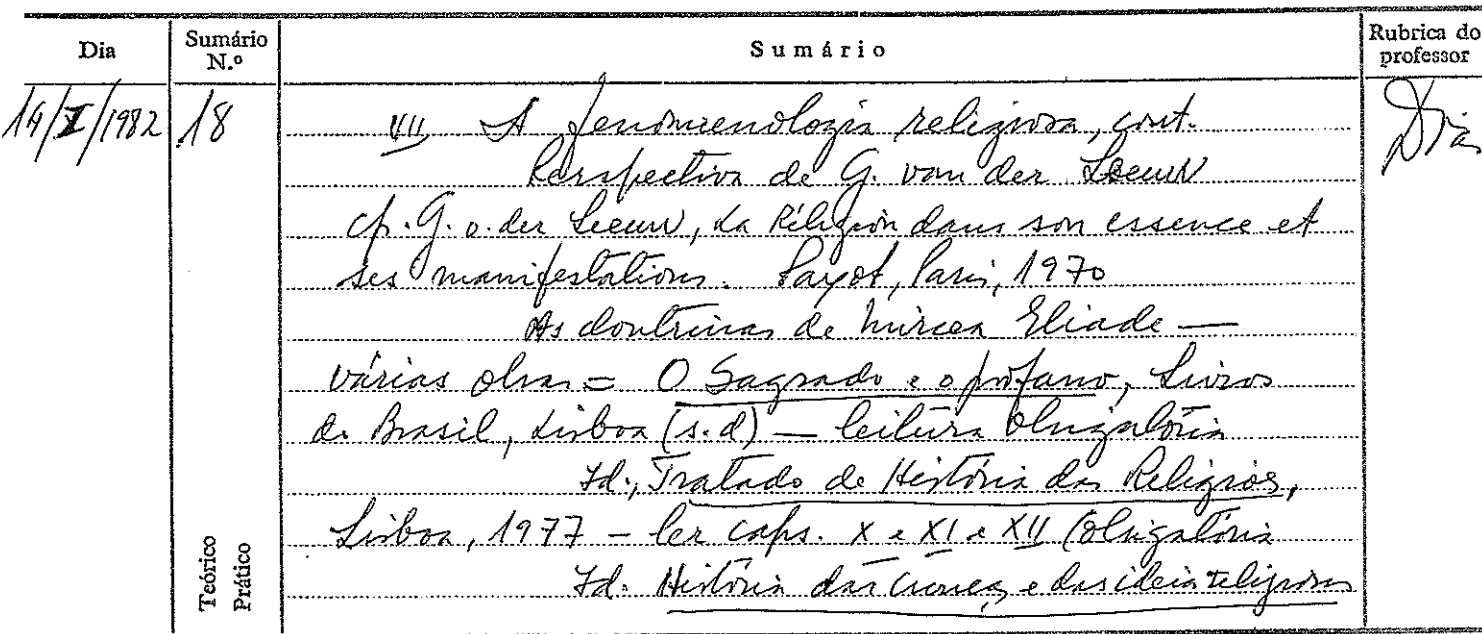 Dia
Sumário N.º
Sumário
Rubrica do professor
14/I/1982
18
VII A fenomenologia religiosa, cont.
Perspectiva de G. van der Leeuw
cf. G. v. der Leeuw, La Réligion dans son essence et
ses manifestations. Payot, Paris, 1970
As doutrinas de Mircea Eliade —
várias obras = O Sagrado e o profano, Livros
do Brasil, Lisboa (s.d) — leitura obrigatória
Id., Tratado de História das Religiões,
Lisboa, 1977 - ler caps. X e XI e XII (obrigatória
Id. História das crenças e das ideias religiosas
Dias
Teórico
Prático